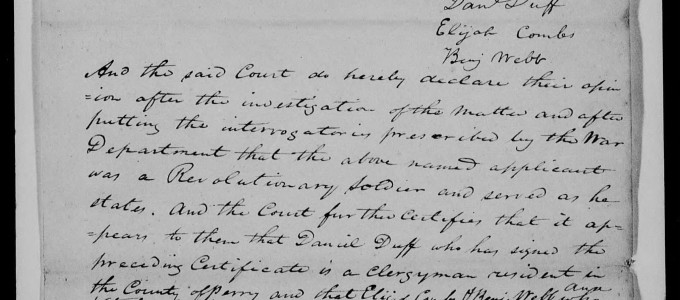 Danl Duff
Elijah Combs
Benj Webb
And the said Court do hereby declare their opin
=ion after the investigation of the matter and after
putting the interrogatories prescribed by the War
Department that the above named applicant
was a Revolutionary Soldier and served as he
states. And the Court further Certifies that it ap=
=pears to them that Daniel Duff who has signed the
preceding Certificate is a Clergyman resident in
the County of Perry and that Elijah Combs & Benj Webb